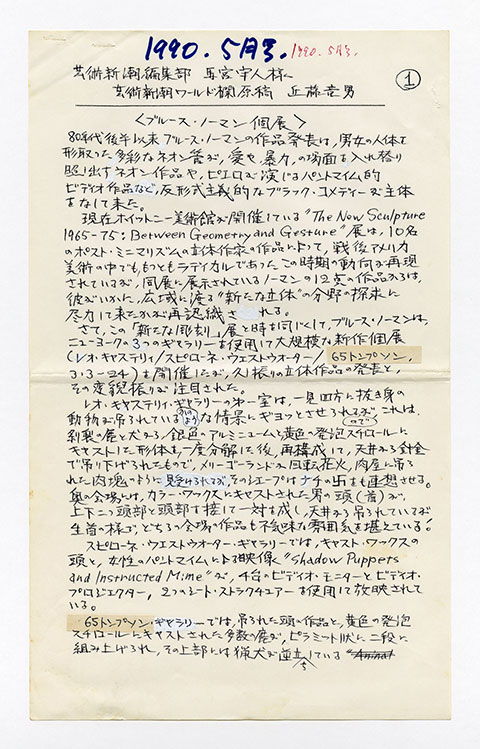 1990.5月号 1990.5月号.
芸術新潮編集部
芸術新潮ワールド欄原稿 近藤竜男
1
〈ブルース・ノーマン個展〉
80年代後半以来ブルース・ノーマンの作品発表は,男女の人体を
形取った多彩なネオン管が,愛や,暴力,の場面を入れ替り
照し出すネオン作品や,ピエロが演じるパントマイム的
ビディオ作品など,反形式主義的なブラック・コメディーが主体
をなして来た。
現在ホイットニー美術館が開催している"The New Sculpture
1965-75: Between Geometry and Gesture"展は,10名
のポスト・ミニマリズムの立体作家の作品によって,戦後アメリカ
美術の中でも,もっともラディカルであったこの時期の動向が再現
されているが,同展に展示されているノーマンの12点の作品からは,
彼がいかに,広域に渡る"新たな立体"の分野の探求に
尽力して来たかが再認識される。
さて,この「新たな彫刻」展と時を同じくして,ブルース・ノーマンは,
ニューヨークの3つのギャラリーを使用して大規模な新作個展
(レオ・キャステリィ/スピローネ・ウェストウオーター/65トンプソン,
3・3-24)を開催したが,久し振りの立体作品の発表と,
その変貌振りが注目された。
レオ・キャステリィ・ギャラリーの第一室は,一見四方に抜き身の
動物が吊られているかのような情景にギョッとさせられるが,これは,
剥製の鹿と犬から/銀色のアルミニュームと黄色の発泡スチロールに
キャストした形体を一度分解した後,再構成して,天井から針金
で吊り下げられたもので,メリーゴーランドか,回転花火,肉屋に吊ら
れた肉塊のように見受けられるが,そのシェープはナチの卐をも連想させる。
奥の会場には,カラー・ワックスにキャストされた男の頭(首)が,
上下二つ頭部と頭部を接して一対を成し,天井から吊られているが
生首の様で,どちらの会場の作品も不気味な雰囲気を堪えている。
スピローネ・ウエストウオーター・ギャラリーでは,キャスト・ワックスの
頭と,女性のパントマイムによる映像"Shadow Puppets
and Instructed Mime"が,4台のビディオ・モニターとビディオ・
プロジェクター,2つのシート・ストラクチュアーを使用して放映されて
いる。
65トンプソン・ギャラリーでは,吊られた頭の作品と,黄色の発泡
スチロールにキャストされた多数の鹿が,ピラミット状に二段に
組み上げられ,その上部には猟犬が逆立ちしている"Animal